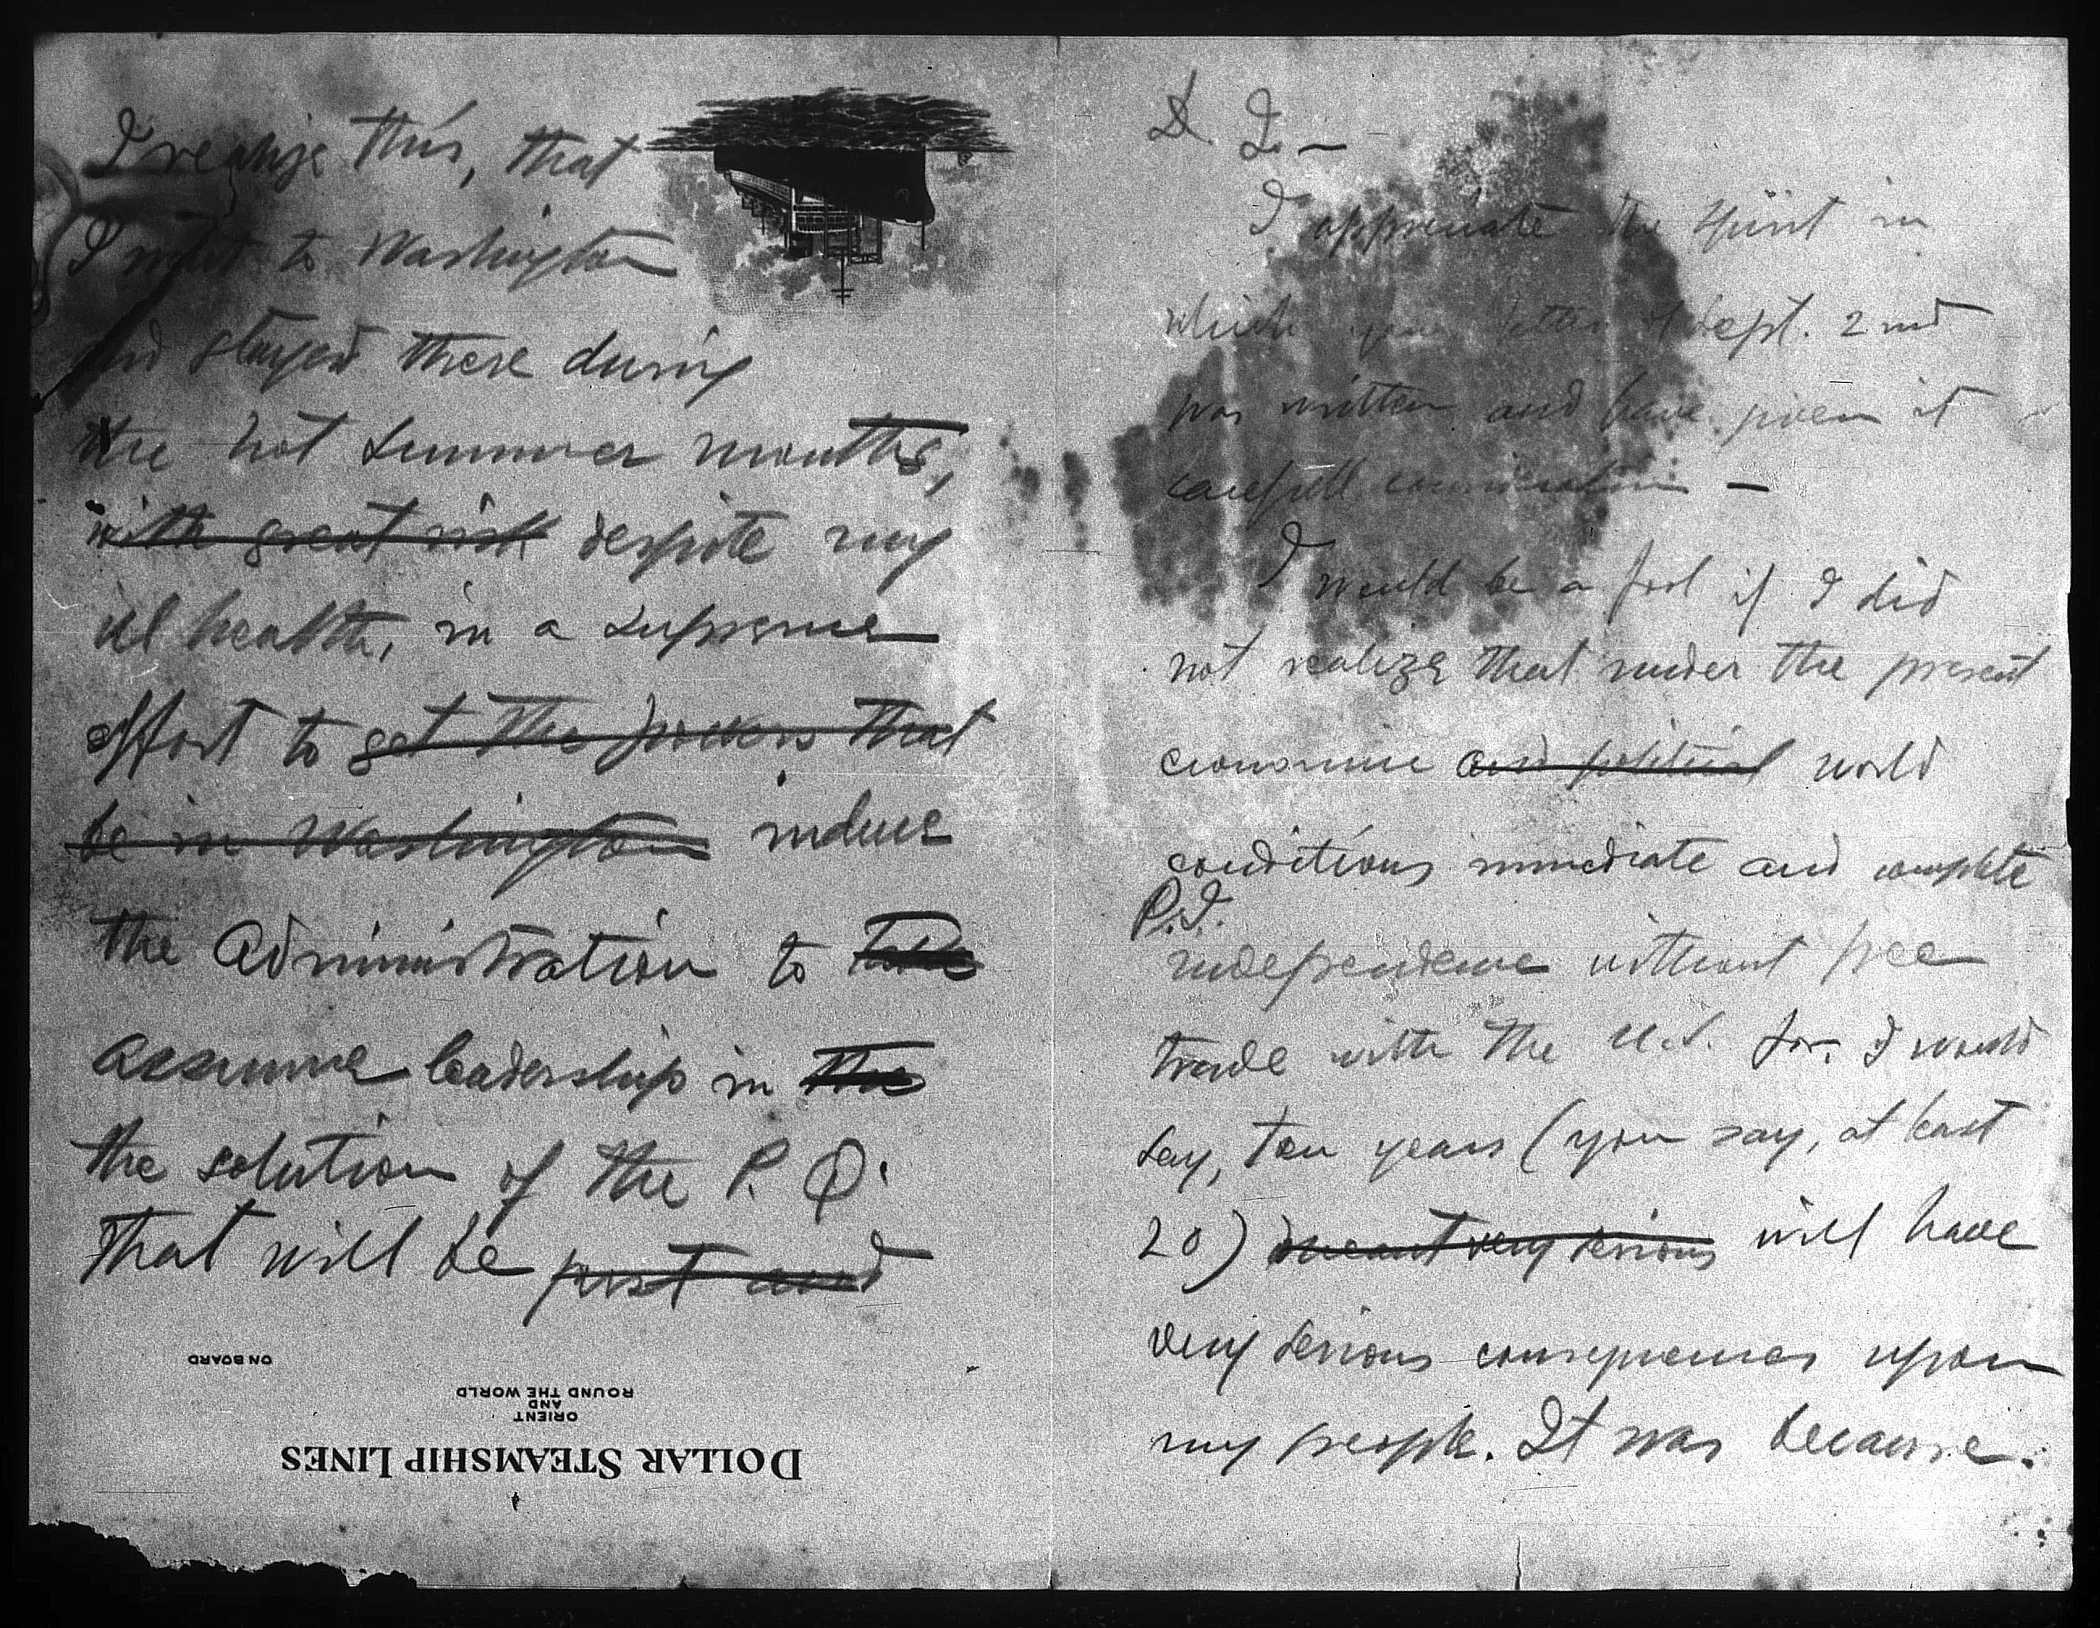 D. J. —
I appreciate the spirit in
which your letter of Sept. 2nd
was written and have given it
carefull consideration —
I would be a fool if I did
not realize that under the present
economic and political world
conditions immediate and complete
P.I.
independence without free
trade with the U.S. for, I would
say, ten years (you say, at least
20) very serious will have
very serious consequences upon
my people. It was because
I realize this, that
I went to Washington
and stayed there during
the hot summer months,
with great risk despite my
ill health, in a supreme
effort to get the powers that
be in Washington induce
the Administration to take
assume leadership in the
the solution of the P. Q.
that will be just and
ON BOARD
DOLLAR STEAMSHIP LINES
ORIENT
AND
ROUND THE WORLD